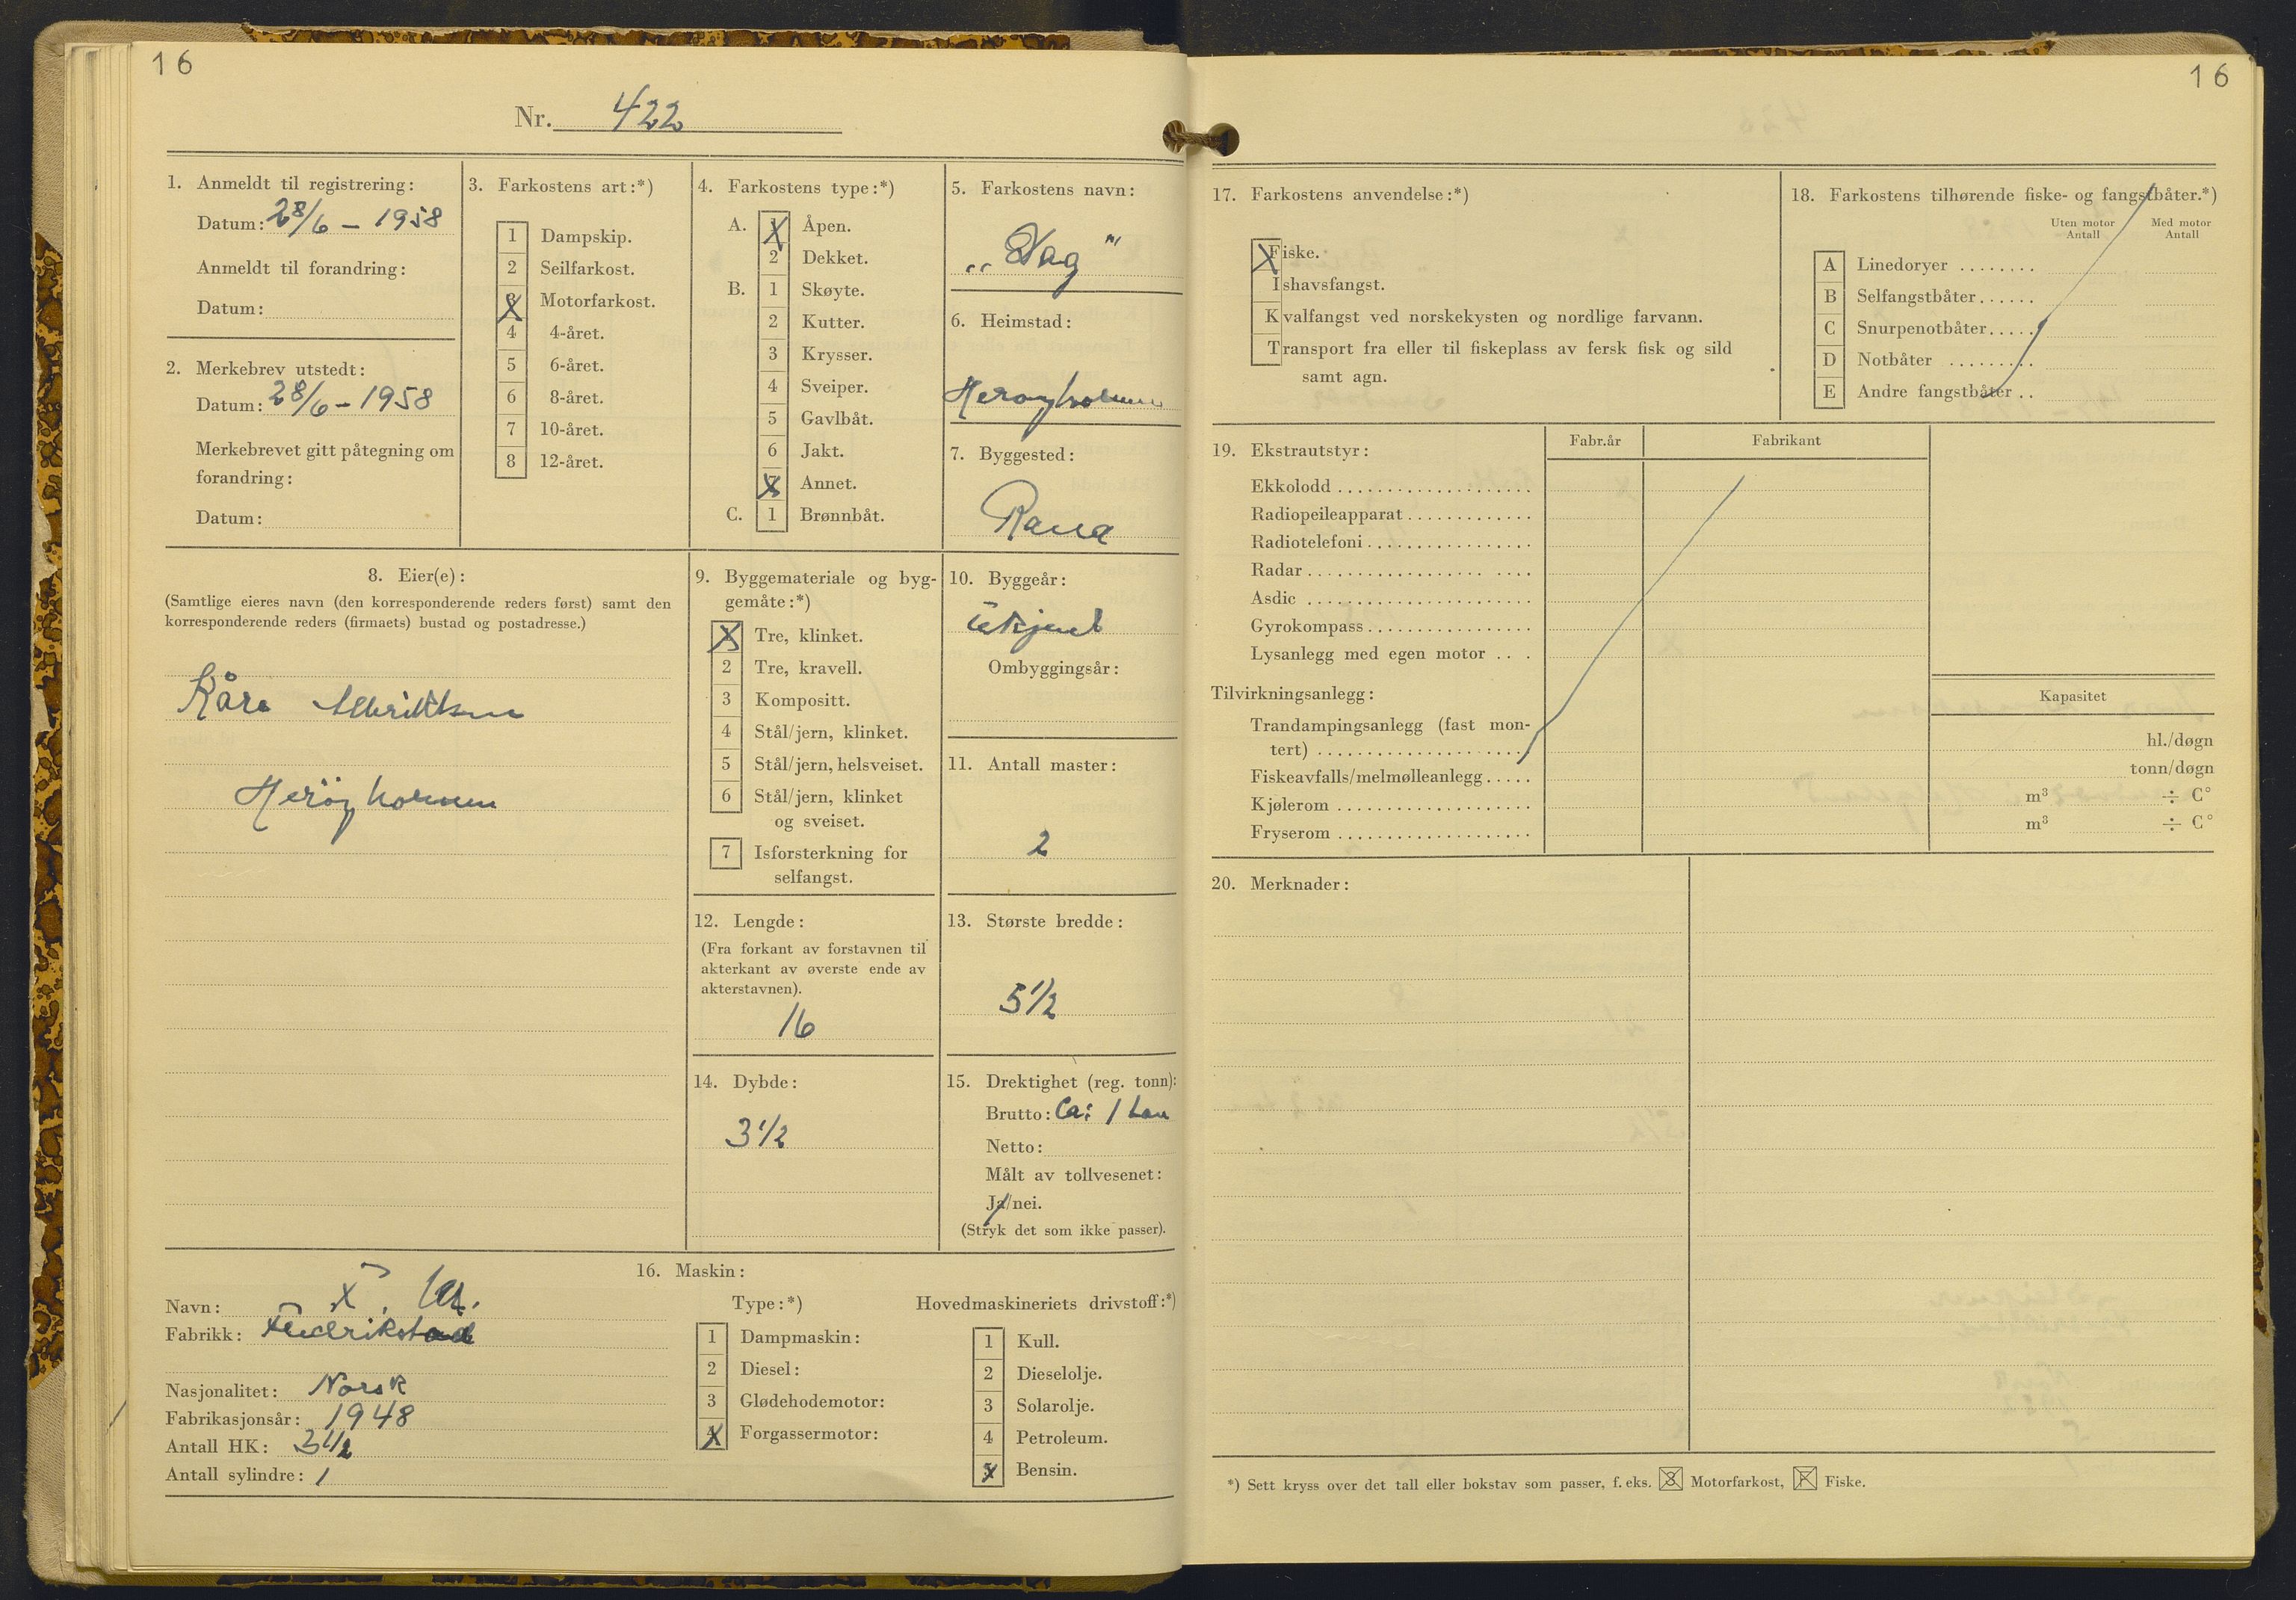 16
Nr. 422
1. Anmeldt til registrering:
Datum: 28/6 - 1958
Anmeldt til forandring:
Datum:
2. Merkebrev utstedt:
Datum: 28/6 - 1958
Merkebrevet gitt påtegning om
forandring:
Datum:
3. Farkostens art:*)
1 Dampskip.
2 Seilfarkost.
X Motorfarkost.
4 4-året.
5 6-året.
6 8-året.
7 10-året.
8 12-året.
4. Farkostens type:*)
A. X Åpen.
2 Dekket.
B. 1 Skøyte.
2 Kutter.
3 Krysser.
4 Sveiper.
5 Gavlbåt.
6 Jakt.
X Annet.
C. 1 Brønnbåt.
5. Farkostens navn:
6. Heimstad:
Herøyholmen
7. Byggested:
Rana
8. Eier(e):
(Samtlige eieres navn (den korresponderende reders først) samt den
korresponderende reders (firmaets) bustad og postadresse.)
Kåre
Herøyholmen
9. Byggemateriale og byg-
gemåte:*)
X Tre, klinket.
2 Tre, kravell.
3 Kompositt.
4 Stål/jern, klinket.
5 Stål/jern, helsveiset.
6 Stål/jern, klinket
og sveiset.
7 Isforsterkning for
selfangst.
10. Byggeår:
Ukjent
Ombyggingsår:
11. Antall master:
2
12. Lengde:
(Fra forkant av forstavnen til
akterkant av øverste ende av
akterstavnen).
16
13. Største bredde:
5 1/2
14. Dybde:
3 1/2
15. Drektighet (reg. tonn):
Brutto: Ca: 1 ton
Netto:
Målt av tollvesenet:
Ja/nei.
(Stryk det som ikke passer).
16. Maskin:
Navn:
Fabrikk: Fredrikstad
Nasjonalitet: Norsk
Fabrikasjonsår: 1948
Antall HK: 3 1/2
Antall sylindre: 1
Type:*)
1 Dampmaskin:
2 Diesel:
3 Glødehodemotor:
X Forgassermotor:
Hovedmaskineriets drivstoff:*)
1 Kull.
2 Dieselolje.
3 Solarolje.
4 Petroleum.
X Bensin.
16
17. Farkostens anvendelse:*)
Fiske.
Ishavsfangst.
Kvalfangst ved norskekysten og nordlige farvann.
Transport fra eller til fiskeplass av fersk fisk og sild
samt agn.
18. Farkostens tilhørende fiske- og fangstbåter.*)
Uten motor Med motor
Antall Antall
A Linedoryer ........
B Selfangstbåter......
C Snurpenotbåter.....
D Notbåter .........
E Andre fangstbåter ..
19. Ekstrautstyr:
Fabr.år Fabrikant
Ekkolodd
Radiopeileapparat
Radiotelefoni
Radar
Asdic
Gyrokompass
Lysanlegg med egen motor
Tilvirkningsanlegg:
Kapasitet
Trandampingsanlegg (fast mon-
tert) hl./døgn
Fiskeavfalls/melmølleanlegg tonn/døgn
Kjølerom m³ ÷ C°
Fryserom m³ ÷ C°
20. Merknader:
*) Sett kryss over det tall eller bokstav som passer, f. eks. 3 Motorfarkost, F Fiske.